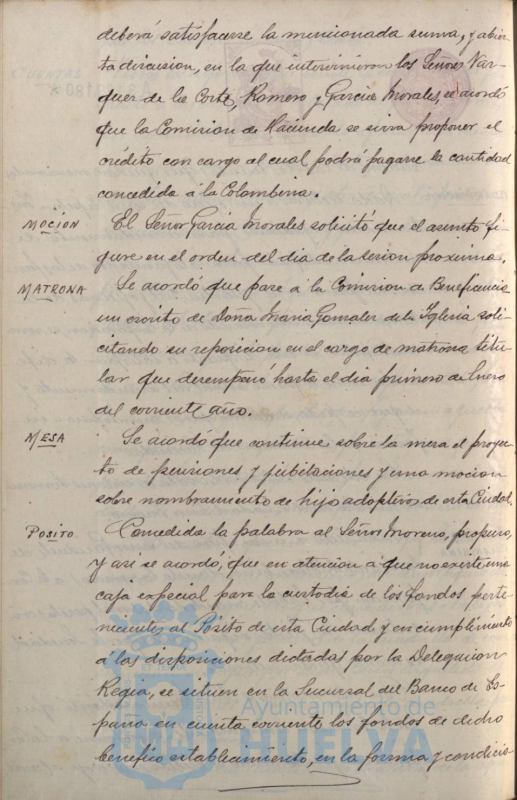 deberá satisfacerse la mencionada suma, y abier-
ta discusion, en la que intervinieron los Señores Vaz-
quez de la Corte, Romero y Garcia Morales, se acordó
que la Comision de Hacienda se sirva proponer el
crédito con cargo al cual podrá pagarse la cantidad
concedida á la Colombina.
MOCIÓN El Señor Garcia Morales solicitó que el asunto fi-
gure en el orden del dia de la sesion proxima.
MATRONA Se acordó que pase á la Comision de Beneficencia
un escrito de Doña Maria Gonzalez de la Yglesia soli-
citando su reposicion en el cargo de matrona titu-
lar que desempeñó hasta el dia primero de Enero
del corriente año.
MESA Se acordó que continue sobre la mesa el proyec-
to de pensiones y jubilaciones y una mocion
sobre nombramiento de hijos adoptivos de esta Ciudad.
POSITO Concedida la palabra al Señor Moreno, propuso,
y asi se acordó, que en atencion a que no existe una
caja especial para la custodia de los fondos perte-
necientes al Pósito de esta Ciudad y en cumplimiento
á las disposiciones dictadas por la Delegacion
Regia, se situen en la Sucursal del Banco de Es-
paña en cuenta corriente los fondos de dicho
benefico establecimiento, en la forma y condicio-
Ayuntamiento de
HUELVA